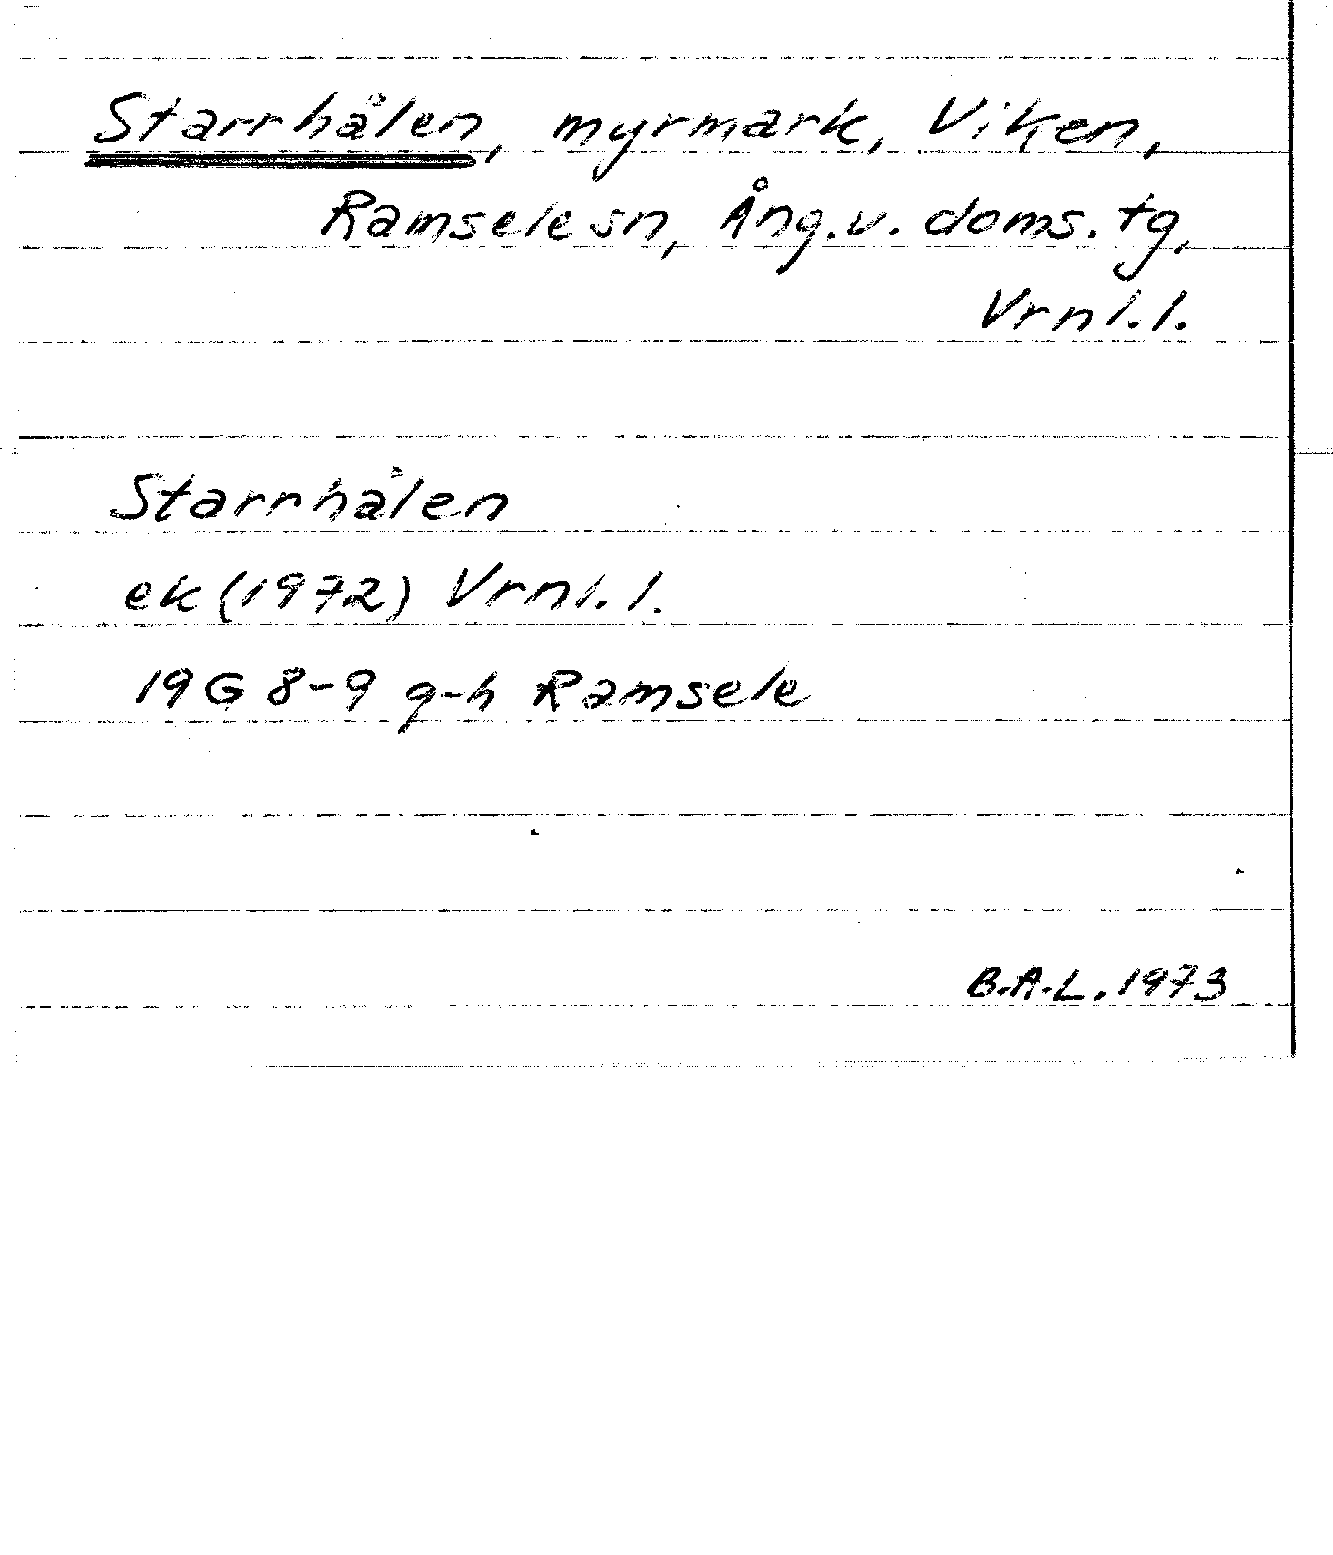 Starrhålen, myrmark, Viken,
Ramsele sn, Ång.v. doms. tg,
Vrnl.l.
Starrhålen
ek (1972) Vrnl.l.
19G 8-9 g-h Ramsele
B.A.L. 1973